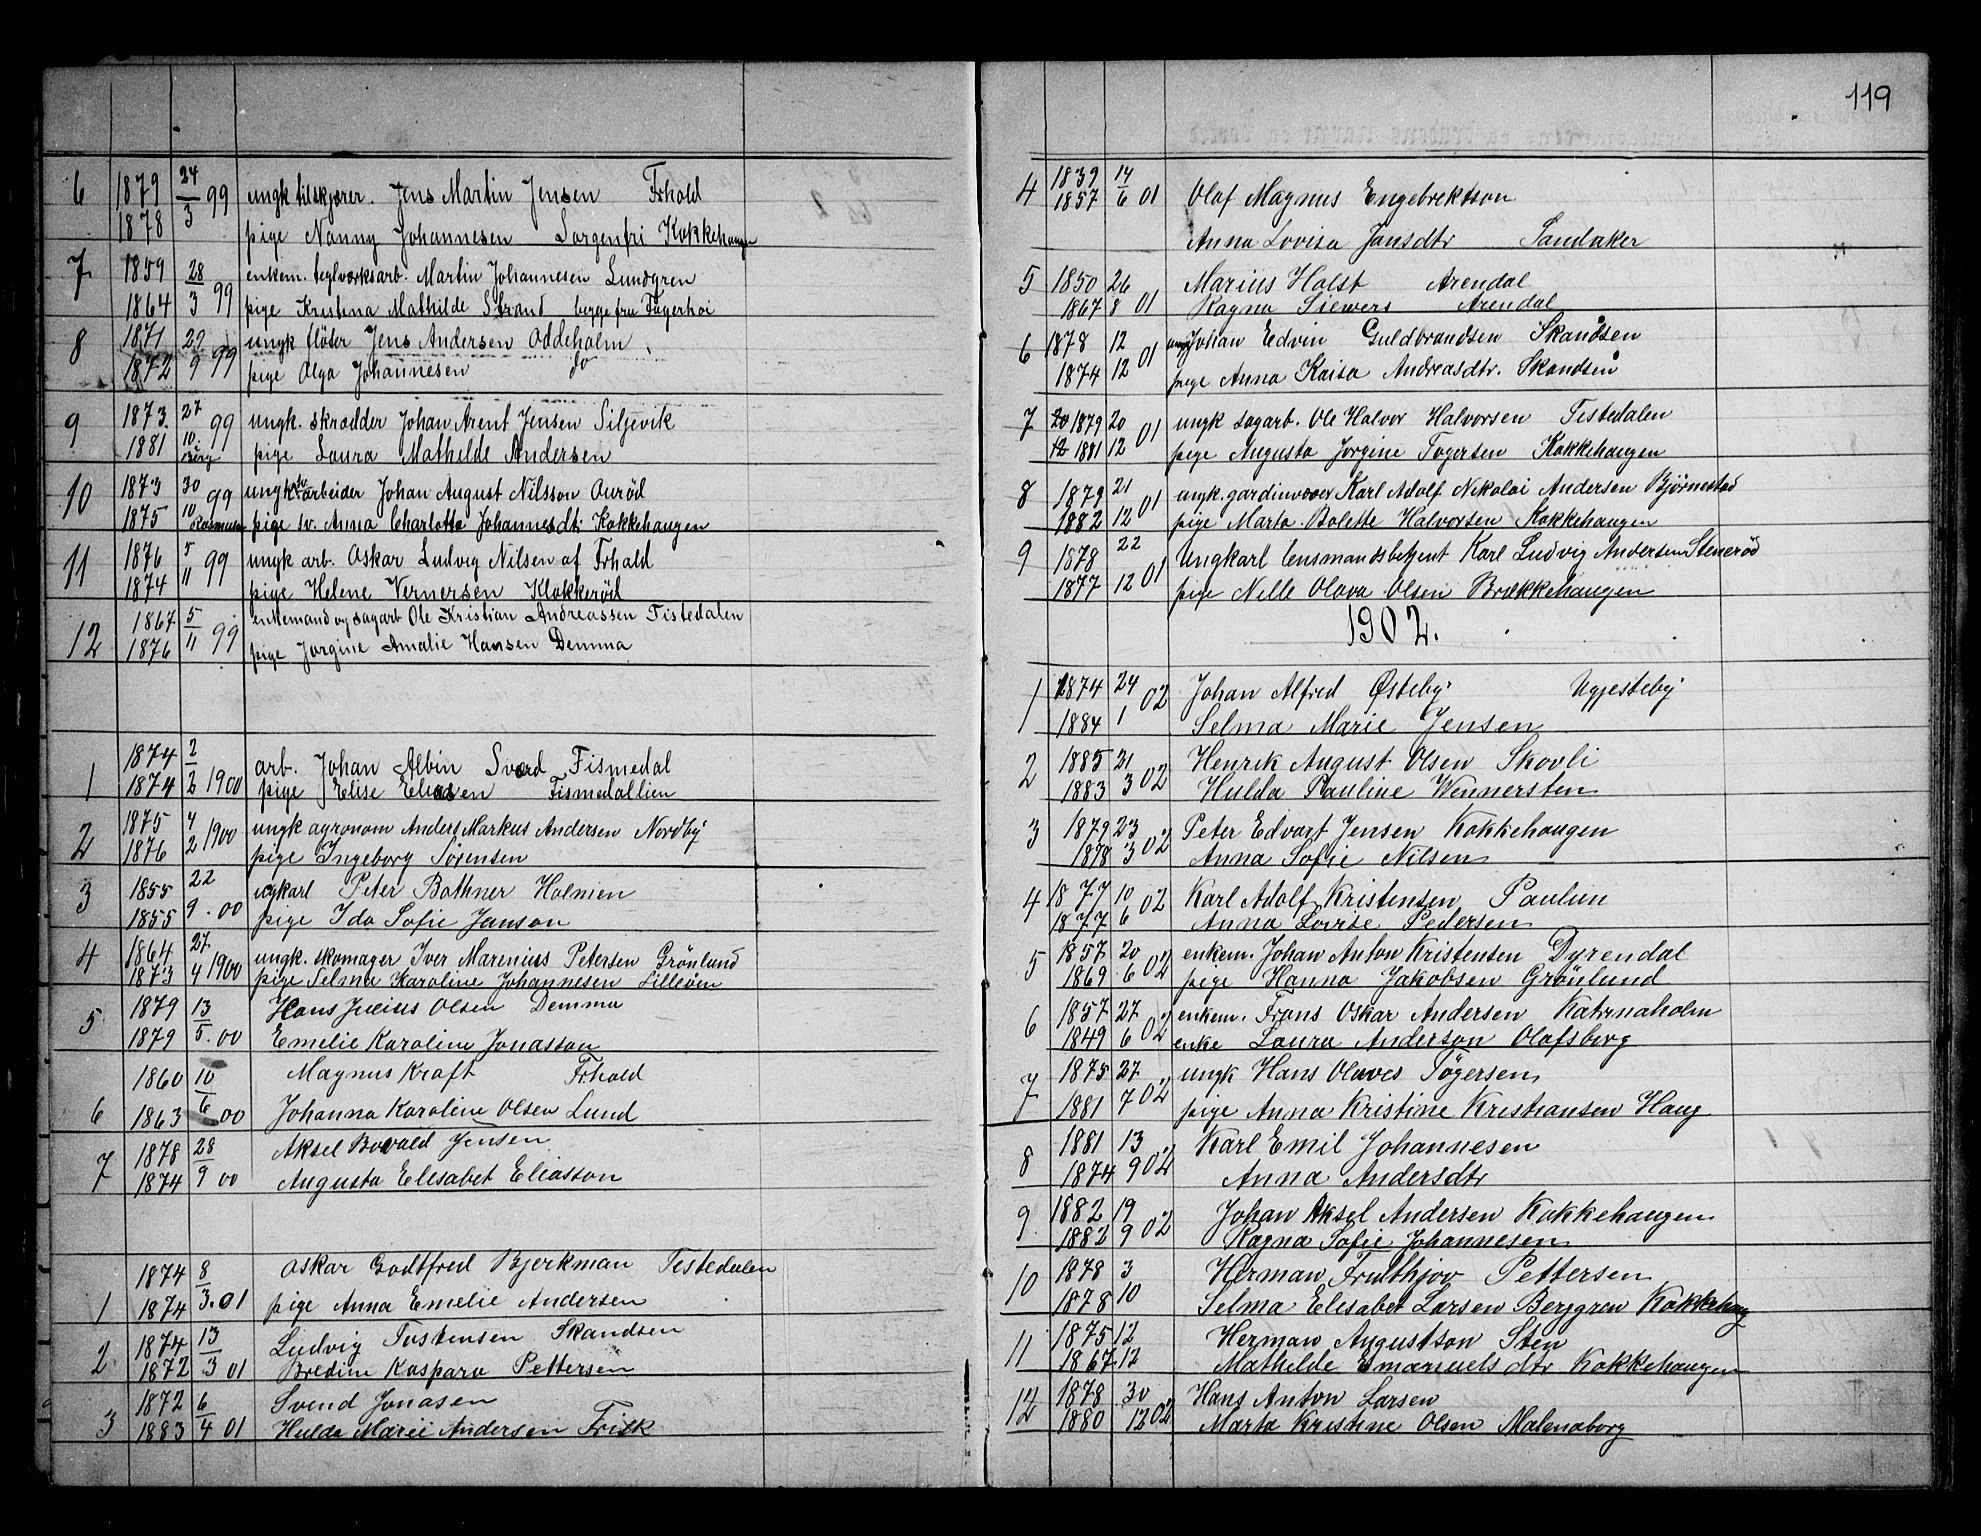 6 1879 24/3 99 ungk tilskjærer. Jens Martin Jensen Frhald
1878 pige Nanny Johannesen Sorgenfri Kokkehaugen
7 1859 28/3 99 enkem. teglværksarb. Martin Johannesen Lundgren
1864 pige Kristina Mathilde Strand Fagerhoi
8 1871 29 ungk fløter Jens Andersen Oddeholm
1872 9 99 pige Olga Johannesen do
9 1873 27 99 ungk. skrædder Johan Arent Jensen Siljevik
1881 10 Berg pige Laura Mathilde Andersen
10 1873 30 99 ungk arbeider Johan August Nilsson Aurød
1875 10 Rasmusen pige sv. Anna Charlotta Johannesdt. Kokkehaugen
11 1876 5/11 99 ungk arb. Oskar Ludvig Nilsen af Frhald
1874 pige Helene Vernersen Klokkerød
12 1867 5/11 99 enkemand og sagarb Ole Kristian Andreassen Tistedalen
1876 pige Jørgine Amalie Hansen Demma
1 1874 2/2 1900 arb. Johan Albin Sværd Fismedal
1874 pige Elise Eliasen Fismedallien
2 1875 4 1900 ungk agronom Anders Markus Andersen Nordby
1876 2 pige Ingeborg Sørensen
3 1855 22 ugkarl Peter Bothner Holmen
1855 9.00 pige Ida Sofie Janson
4 1864 27 ungk. skomager Iver Marenius Petersen Grönlund
1873 4 1900 pige Selma Karoline Johannesen Lilleöen
5 1879 13 Hans Julius Olsen Demma
1879 5.00 Emelie Karoline Jonasson
1860 10 Magnus Kraft Frhald
6 1863 6 00 Johanna Karoline Olsen Lund
7 1878 28 Aksel Bovald Jensen
1874 9 00 Augusta Elesabet Eliasson
1874 8 Oskar Godtfred Bjerkman Testedalen
1 1874 3.01 pige Anna Emelie Andersen
2 1874 13 Ludvig Tostensen Skandsen
1872 3 01 Bredine Kaspara Pettersen
1872 6 Svend Jonasen
3 1883 4 01 Hulda Marie Andersen Frisk
119
4 1839 14 Olaf Magnus Engebrektson
1857 6 01
Anna Lovisa Jansdtr Sandaker
5 1850 26 Marius Holst Arendal
1867 8 01 Ragna Siewers Arendal
6 1878 12 01 ung Johan Edvin Guldbrandsen Skandsen
1874 12 pige Anna Kaisa Andreasdtr. Skandsen
7 20 1879 20 01 ungk sagarb. Ole Halvor Halvorsen Tistedalen
12 1881 12 pige Augusta Jørgine Togersen Kokkehaugen
8 1879 21 01 ungk. gardinvæver Karl Adolf Nikolai Andersen Björnestad
1882 12 pige Marta Bolette Halvorsen Kokkehaugen
9 1878 22 Ungkarl lensmandsbetjent Karl Ludvig Andersen Stenerød
1877 12 01 pige Nelle Olava Olsen Brækkehaugen
1902.
1 1874 24 02 Johan Alfred Østeby Ugjesteby
1884 1 Selma Marie Jensen
2 1885 21 Henrik August Olsen Skovli
1883 3 02 Hulda Pauline Wennersten
3 1879 23 02 Peter Edvart Jensen Kokkehaugen
1878 3 Anna Sofie Nilsen
4 1877 10 02 Karl Adolf Kristensen Paulun
1877 6 Anna Lovise Pedersen
5 1857 20 enkem. Johan Anton Kristensen Dyrendal
1869 6 02 pige Hanna Jakobsen Grönlund
6 1857 27 enkem. Frans Oskar Andersen Katrinaholm
1849 6 02 enke Laura Anderson Olafsberg
7 1875 27 ungk Hans Olaves Tögersen
1881 7 02 pige Anna Kristine Kristiansen Haug
8 1881 13 Karl Emil Johannesen
1874 9 02 Anna Andersdtr
9 1882 19 Johan Aksel Andersen Kokkehaugen
1882 9 02 Ragna Sofie Johannesen
10 1878 3 Herman Fruithjov Pettersen
1878 10 Selma Elesabet Larsen Berggren Kokkehaug
11 1875 12 Herman Augustson Sten
1867 12 Mathilde Emanuels dtr Kokkehaugen
12 1878 30 Hans Anton Larsen
1880 12 02 Marta Kristine Olsen Malenaborg